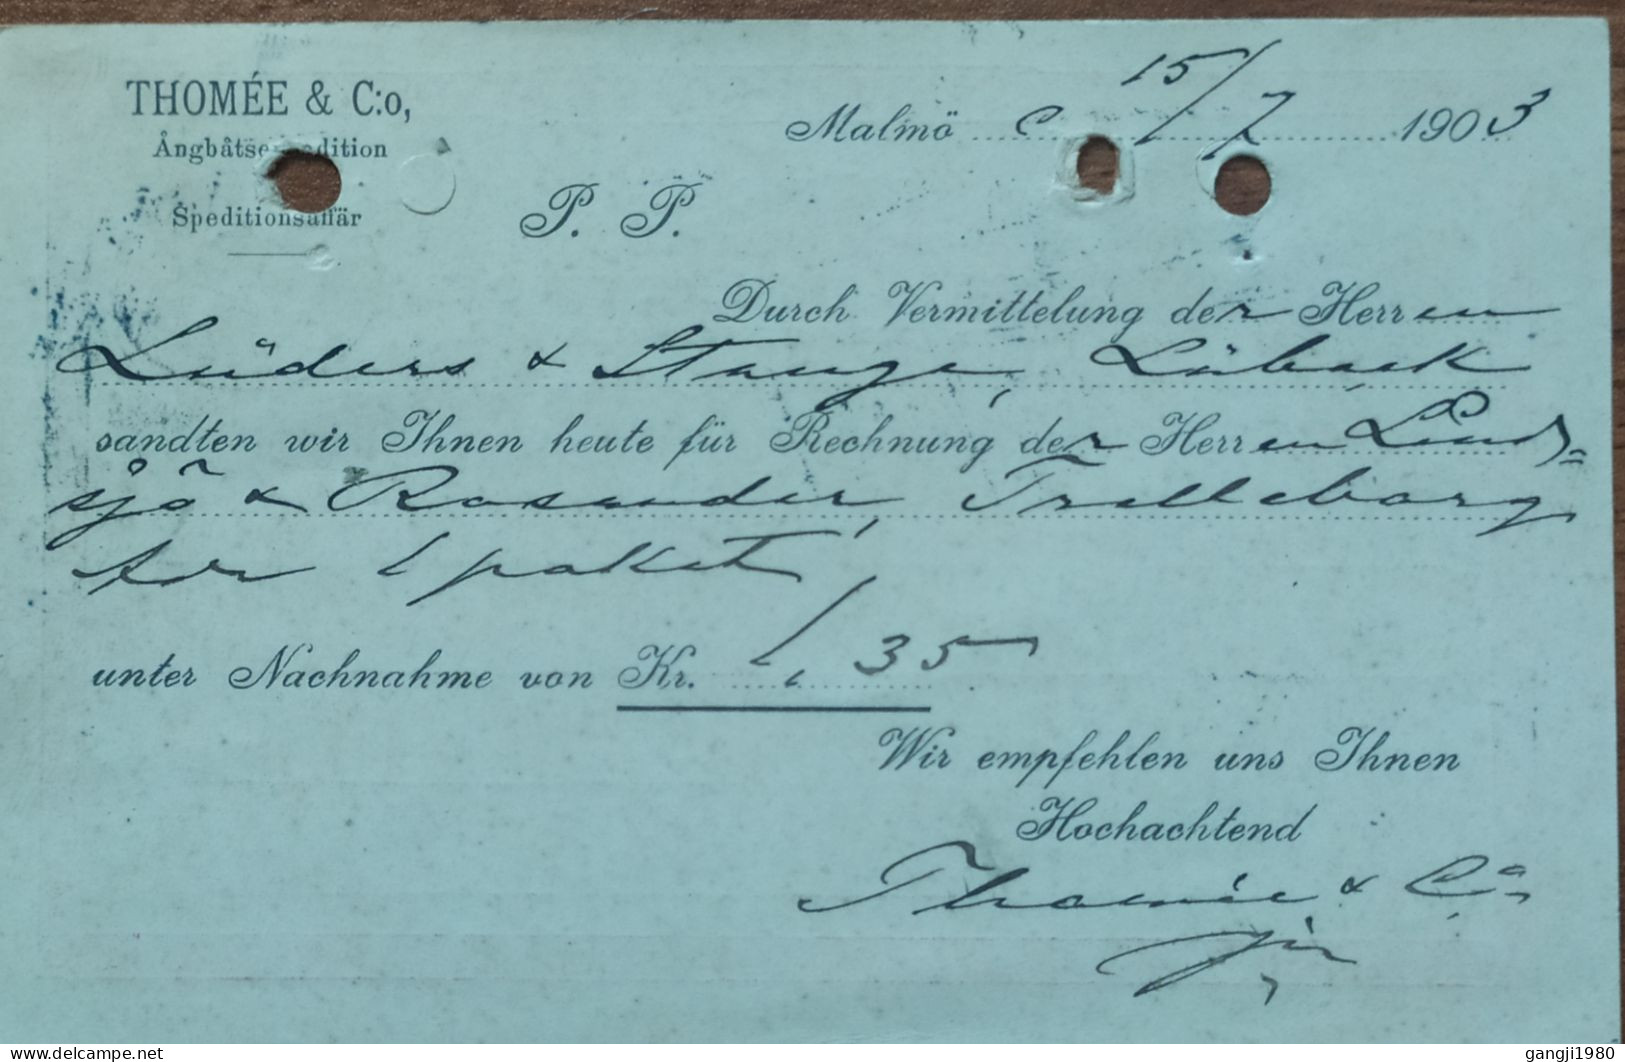 THOMÉE & C:o,
Ångbåtsexpedition
Speditionsaffär
Malmö 15/7 1903
P. P.
Durch Vermittelung der Herren
Lüders & Stange, Lübeck
sandten wir Ihnen heute für Rechnung der Herren Lind=
sjö & Rosander, Trelleborg
1 paket
unter Nachnahme von Kr. 1,35
Wir empfehlen uns Ihnen
Hochachtend
Thomée & Co
delcampe.net
gangji1980